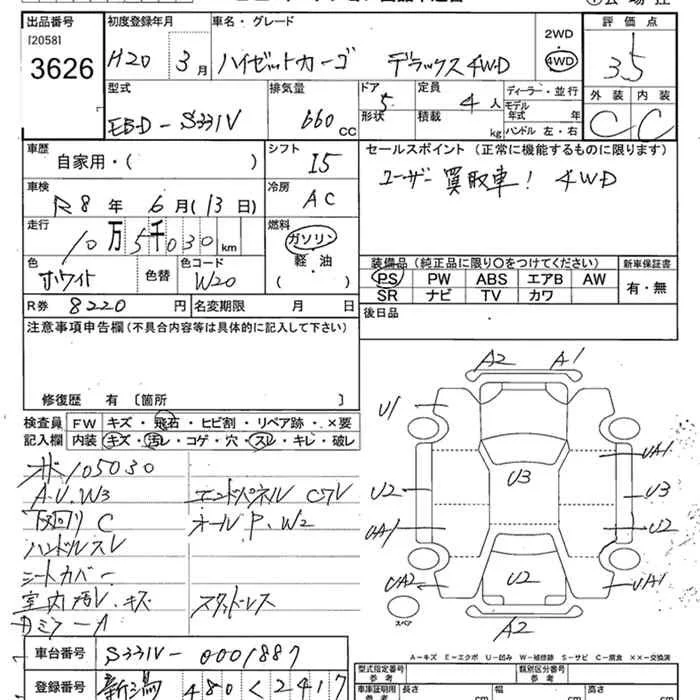 出品番号
[2058]
3626
初度登録年月
H20 3月
車名・グレード
ハイゼットカーゴ デラックス4WD
2WD
・
4WD
評価点
3.5
外装 内装
C C
型式
EBD-S331V
排気量
660 CC
ドア
5
形状
定員
4人
積載
kg
ディーラー・並行
モデル年式 年
ハンドル 左・右
車歴
自家用・( )
シフト
I5
冷房
AC
車検
R8年6月(13日)
走行
10万5千030km
燃料
ガソリン
軽・油
( )
色
ホワイト
色替
色コード
W20
R券 8220円
名変期限 月 日
セールスポイント (正常に機能するものに限ります)
ユーザー買取車! 4WD
装備品 (純正品に限り○をつけてください)
PS PW ABS エアB AW
SR ナビ TV カワ
新車保証書
有・無
後日品
注意事項申告欄 (不具合内容等は具体的に記入して下さい)
修復歴 有 〔箇所 〕
検査員記入欄
FW キズ・飛石・ヒビ割・リペア跡・×要
内装 キズ・汚レ・コゲ・穴・スレ・キレ・破レ
105030
A.U.W3 エンドパネル Cワレ
下回り C オール P.W2
ハンドルスレ
シートカバー
室内汚レ.キズ スタッドレス
A2 A1
U1
UA1
U3
U2
U3
UA1
U2
UA2
U2
UA1
スペア
A2
A-キズ E-エクボ U-凹み W-補修跡 S-サビ C-腐食 ××-交換済
車台番号 S331V-0001887
登録番号 新潟 480 く 2417
型式指定番号
参考
類別区分番号
参考
車庫証明用
参考
長さ cm
幅 cm
高さ cm